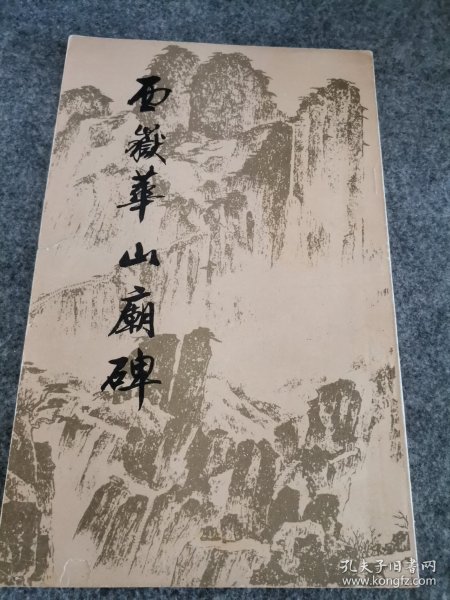 西嶽華山廟碑
孔夫子旧书网
www.kongfz.com